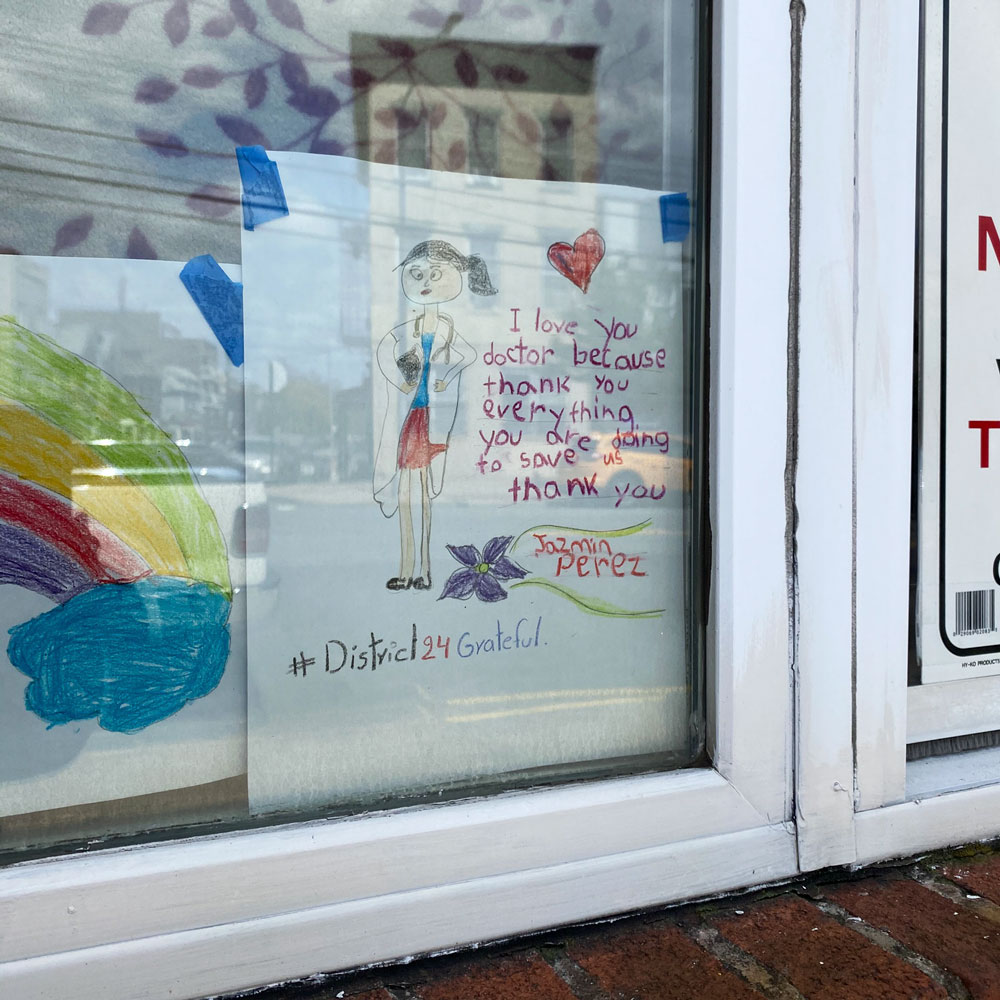 I love you
doctor because
thank you
everything
you are doing
to save us
thank you
Jazmin
Perez
#District24Grateful.
HY-KO PRODUCTS